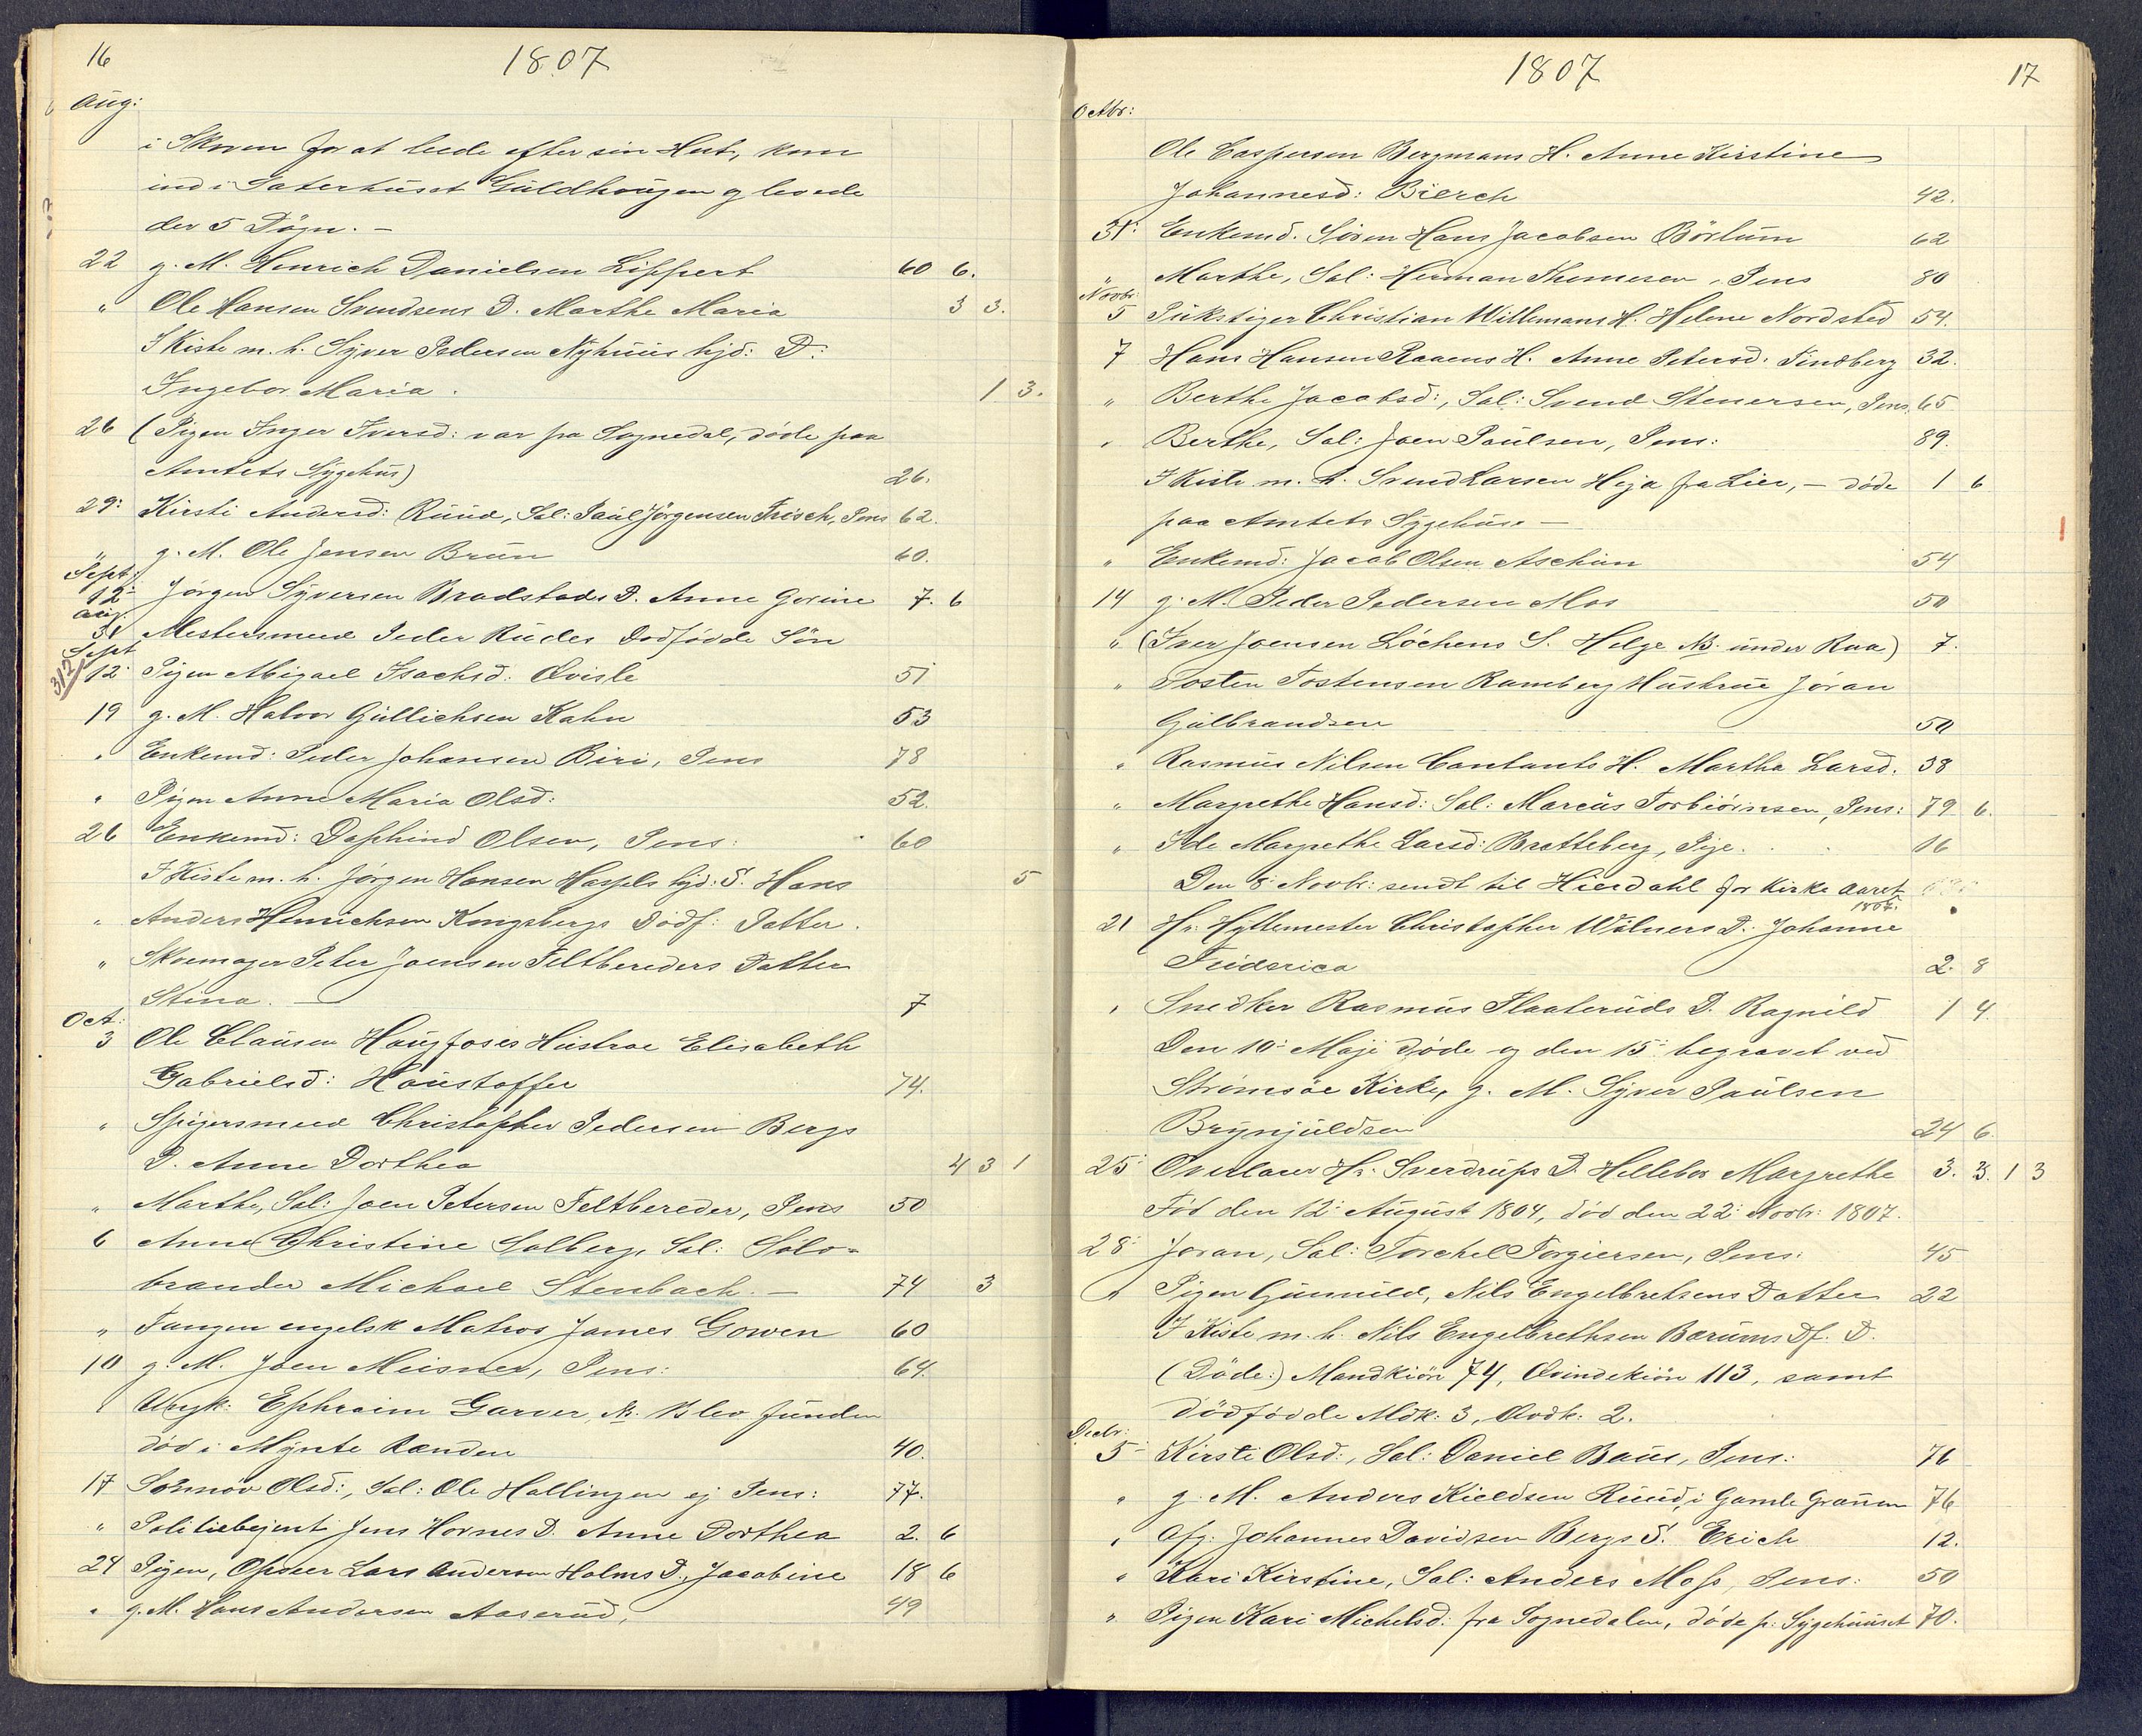 16
1807
Aug:
i Skoven for at leede efter sin Hest, kom
ind i Saterhuset Guldhougen og levede
der 5 Døgn. -
22 g. M. Henrich Danielsen Lippert 60 6.
" Ole Hansen Svendsens D. Marthe Maria 3 3.
I Kiste m. h. Syver Pedersen Nyhuus hjd: D:
Ingebor Maria. 1 3.
26 (Pigen Inger Iversd: var fra Sognedal, døde paa
Amtets Sygehus) 26.
29: Kirsti Andersd: Ruud, Sal: Paul Jørgensen Frisch, Pens 62.
" g. M. Ole Jensen Brun 60.
Sept:
12 Jörgen Syversen Bradstads D. Anne Gorine 7. 6
Aug.
31 Mestersmed Peder Rudes Dødfødde Sön
Sept
312
12 Pigen Abigael Isachsd: Qvisle 51
19 g. M. Halvor Gullichsen Kahn 53
" Enkemd: Peder Johansen Biri, Pens 78
" Pigen Anne Maria Olsd: 52.
26 Enkemd: Daphind Olsen, Pens: 60
I Kiste m. h. Jörgen Hansen Haspels hjd: S. Hans 5
" Anders Henrichsen Kongsbergs Dödf: Datter.
" Skoemager Peter Joensen Feltbereders Datter
Stina. - 7
Oct:
3 Ole Clausen Haugfoses Hustroe Elisabeth
Gabrielsd: Haustoffer 74.
" Spigersmed Christopher Pedersen Bergs
D. Anne Dorthea 4 3 1
" Marthe, Sal: Joen Petersen Feltbereder, Pens 50
6 Anne Christine Solberg, Sal: Sölv-
brænder Michael Stenbach. - 74 3
" Fangen engelsk Matros James Gowen 60
10 g. M. Joen Meisner, Pens: 64.
Ephraim Garver, NB. Blev funden
död i Mynte Rænden 40.
17 Olsd:, Sal: Ole Hallingen ej Pens: 77.
" Politiebejent Jens Hornes D. Anne Dorthea 2. 6
24 Pigen, Opseer Lars Andersen Holms D., Jacobine 18 6
" g. M. Hans Andersen Aaserud, 49
1807
17
Octbr:
Ole Caspersen Bergmans H. Anne Kirstine
Johannesd: Bierch 42.
31: Enkemd. Sören Hans Jacobsen Börlum 62
" Marthe, Sal: Herman Thomesen, Pens 80
Novbr:
5 Pukstiger Christian Willemans H. Helene Nordsted 54.
7 Hans Hansen Raaens H. Anne Petersd: Tindberg 32.
" Berthe Jacobsd:, Sal: Svend Stenersen, Pens. 65
" Berthe, Sal: Joen Paulsen, Pens: 89.
I Kiste m. h. Svend Larsen Heja fra Lier, - døde 1 6
paa Amtets Sygehuse -
" Enkemd: Jacob Olsen Aschim 54
14 g. M. Peder Pedersen Moe 50
" (Iver Joensen Löchens S. Helge NB. under Raa) 7.
" Tosten Tostensen Ramberg Hustrue Jöran
Gulbrandsen 50
" Rasmus Nilsen Contants H. Martha Larsd. 38
" Margrethe Hansd: Sal: Marcus Torbiörnsen, Pens: 79 6.
" Ide Margrethe Larsd: Bratteberg, Pige. 16
Den 8: Novbr: sendt til Hierdahl for Kirke Aaret
1807.
21 Hr. Hyttemester Christopher Wölners D: Johanne
Friderica 2. 8
" Snedker Rasmus Flaateruds D. Ragnild 1 4.
Den 10: Maji døde og den 15: begravet ved
Strömsöe Kirke, g. M. Syver Paulsen
Brynjuldsen 24 6.
25: Overlærer Hr. Sverdrups D. Hellebor Margrethe 3. 3. 1 3
Föd den 12: August 1804, död den 22: Novbr: 1807.
28: Joran, Sal: Torchel Torgiersen, Pens: 45
" Pigen Gunnild, Nils Engelbretsens Datter 22
I Kiste m. h. Nils Engelbrethsen Bærums Df. D.
(Döde:) Mandkiön 74, Qvindekiön 113, samt
dödfödde Mdk: 3, Qvdk: 2.
Decbr:
5 Kirsti Olsd:, Sal: Daniel Baus, Pens: 76
" g. M. Anders Kieldsen Ruud, i Gamle Grauen 76
" Afg: Johannes Davidsen Bergs S. Erich 12.
" Kari Kirstine, Sal: Anders Moss, Pens: 50
" Pigen Kari Michelsd: fra Sognedalen, döde p: Sygehuuset 70.